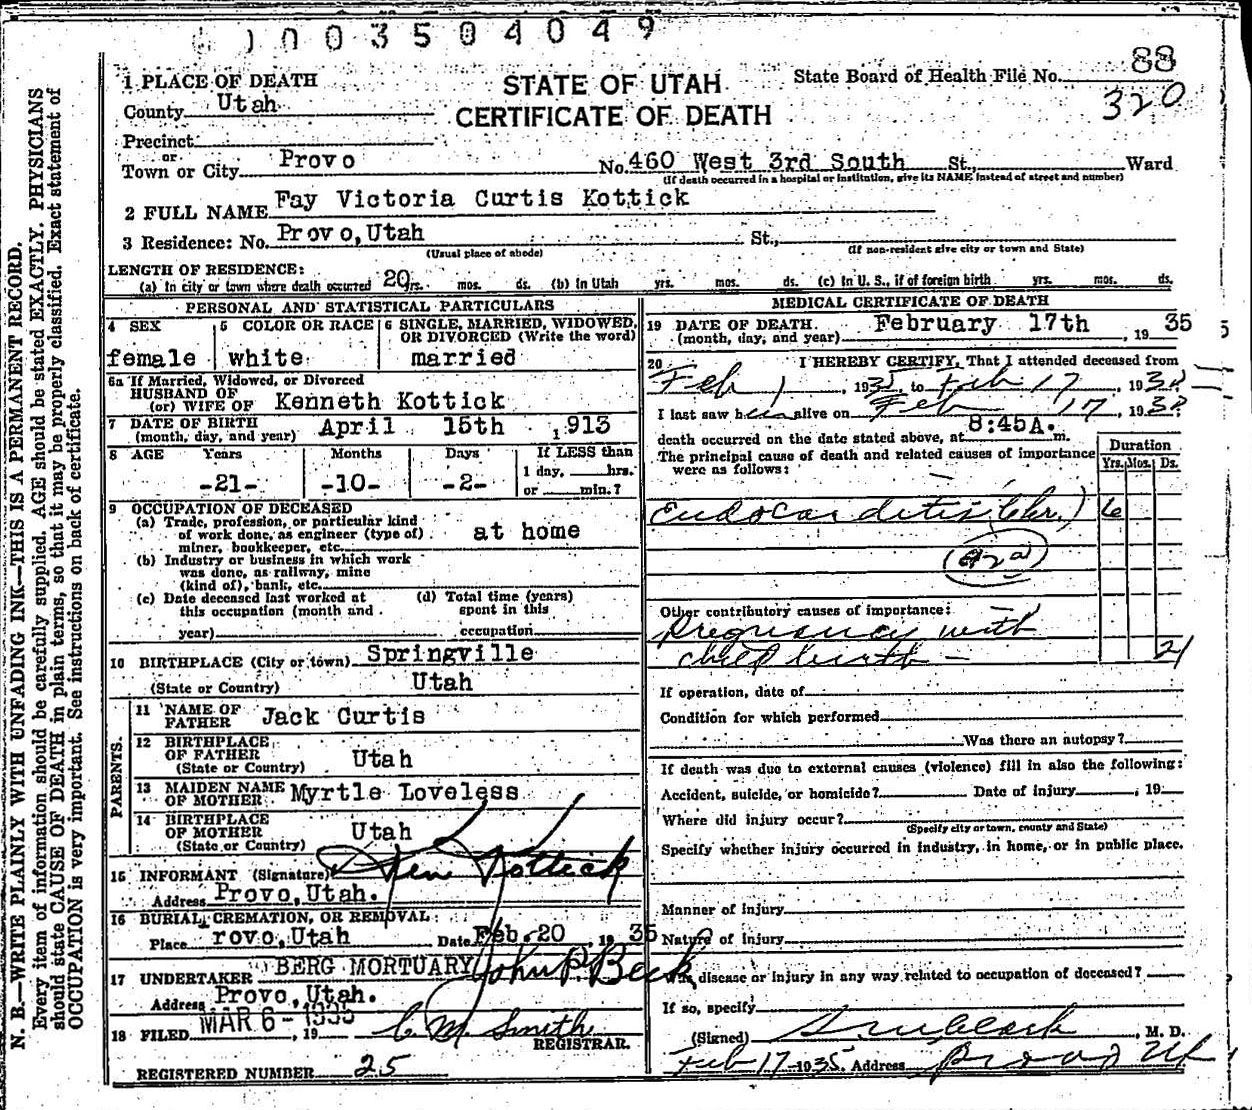 003504049
1 PLACE OF DEATH
STATE OF UTAH
State Board of Health File No. 88
County Utah
CERTIFICATE OF DEATH
320
Precinct
or
Town or City Provo No. 460 West 3rd South St., Ward
(If death occurred in a hospital or institution, give its NAME instead of street and number)
2 FULL NAME Fay Victoria Curtis Kottick
3 Residence: No. Provo, Utah St.,
(Usual place of abode) (If non-resident give city or town and State)
LENGTH OF RESIDENCE:
(a) In city or town where death occurred 20 yrs. mos. ds. (b) In Utah yrs. mos. ds. (c) In U. S., if of foreign birth yrs. mos. ds.
PERSONAL AND STATISTICAL PARTICULARS
4 SEX female
5 COLOR OR RACE white
6 SINGLE, MARRIED, WIDOWED, OR DIVORCED (Write the word) married
6a If Married, Widowed, or Divorced
HUSBAND OF
(or) WIFE OF Kenneth Kottick
7 DATE OF BIRTH
(month, day, and year) April 15th 1913
8 AGE Years Months Days If LESS than
1 day, hrs.
-21- -10- -2- or min.?
9 OCCUPATION OF DECEASED
(a) Trade, profession, or particular kind
of work done, as engineer (type of) at home
miner, bookkeeper, etc.
(b) Industry or business in which work
was done, as railway, mine
(kind of), bank, etc.
(c) Date deceased last worked at
this occupation (month and
year)
(d) Total time (years)
spent in this
occupation
10 BIRTHPLACE (City or town) Springville
(State or Country) Utah
PARENTS.
11 NAME OF
FATHER Jack Curtis
12 BIRTHPLACE
OF FATHER Utah
(State or Country)
13 MAIDEN NAME
OF MOTHER Myrtle Loveless
14 BIRTHPLACE
OF MOTHER Utah
(State or Country)
15 INFORMANT (Signature) Ken Kottick
Address Provo, Utah.
16 BURIAL, CREMATION, OR REMOVAL
Place rovo, Utah Date Feb. 20 1935
17 UNDERTAKER BERG MORTUARY John P. Beck
Address Provo, Utah.
18 FILED MAR 6 - 1935, 19 C. M. Smith
REGISTRAR.
REGISTERED NUMBER 25
MEDICAL CERTIFICATE OF DEATH
19 DATE OF DEATH
(month, day, and year) February 17th, 1935
20 I HEREBY CERTIFY, That I attended deceased from
Feb 1, 1935, to Feb 17, 1935
I last saw her alive on Feb 17, 1935
death occurred on the date stated above, at 8:45A. m.
The principal cause of death and related causes of importance
were as follows:
Duration
Yrs. Mos. Ds.
Endocarditis (Chr.) 6
(92a)
Other contributory causes of importance:
Pregnancy with
child birth - 21
If operation, date of
Condition for which performed
Was there an autopsy?
If death was due to external causes (violence) fill in also the following:
Accident, suicide, or homicide? Date of injury , 19
Where did injury occur?
(Specify city or town, county and State)
Specify whether injury occurred in industry, in home, or in public place.
Manner of injury
Nature of injury
Was disease or injury in any way related to occupation of deceased?
If so, specify
(Signed) M. D.
Feb 17 1935. Address Provo Ut
N. B.—WRITE PLAINLY WITH UNFADING INK—THIS IS A PERMANENT RECORD.
Every item of information should be carefully supplied. AGE should be stated EXACTLY. PHYSICIANS
should state CAUSE OF DEATH in plain terms, so that it may be properly classified. Exact statement of
OCCUPATION is very important. See instructions on back of certificate.